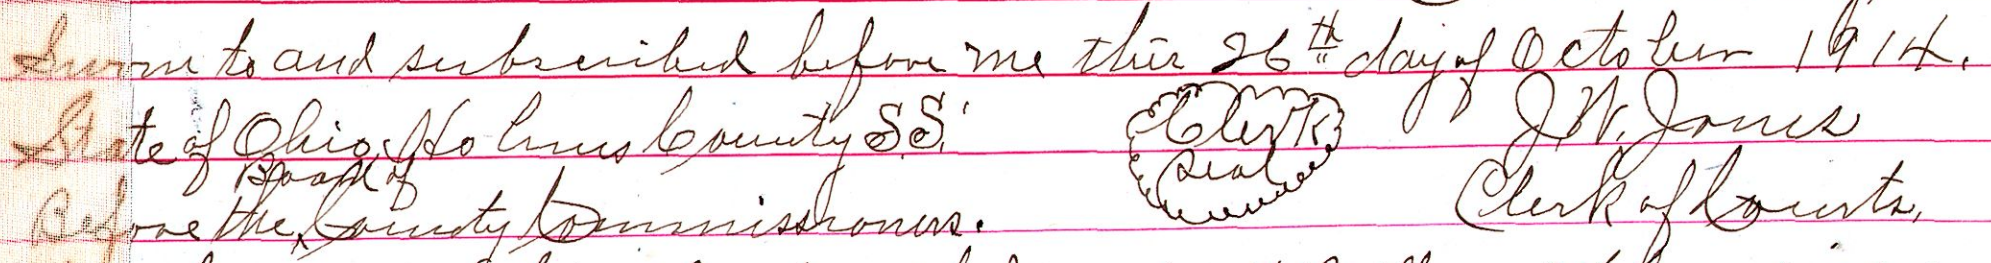 Sworn to and subscribed before me this 26th day of October 1914.
State of Ohio, Holmes County S.S.
Clerk
Seal
J. W. Jones
Clerk of Courts,
Board of
Before the County Commissioners.